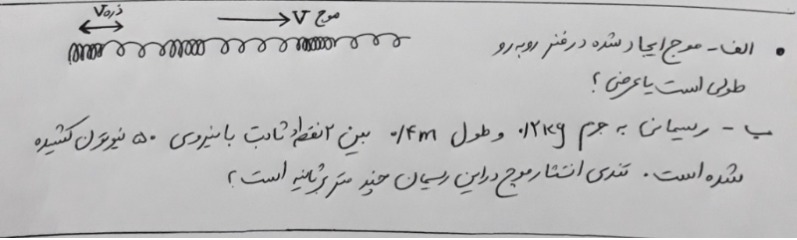 ذره V
موج V
الف - موج ایجاد شده در فنر روبه رو
طولی است یا عرضی ؟
ب - ریسمانی به جرم ۰/۲ kg و طول ۰/۴ m بین ۲ نقطه ثابت با نیروی ۵۰ نیوتون کشیده
شده است . تندی انتشار موج در این ریسمان چند متر بر ثانیه است ؟